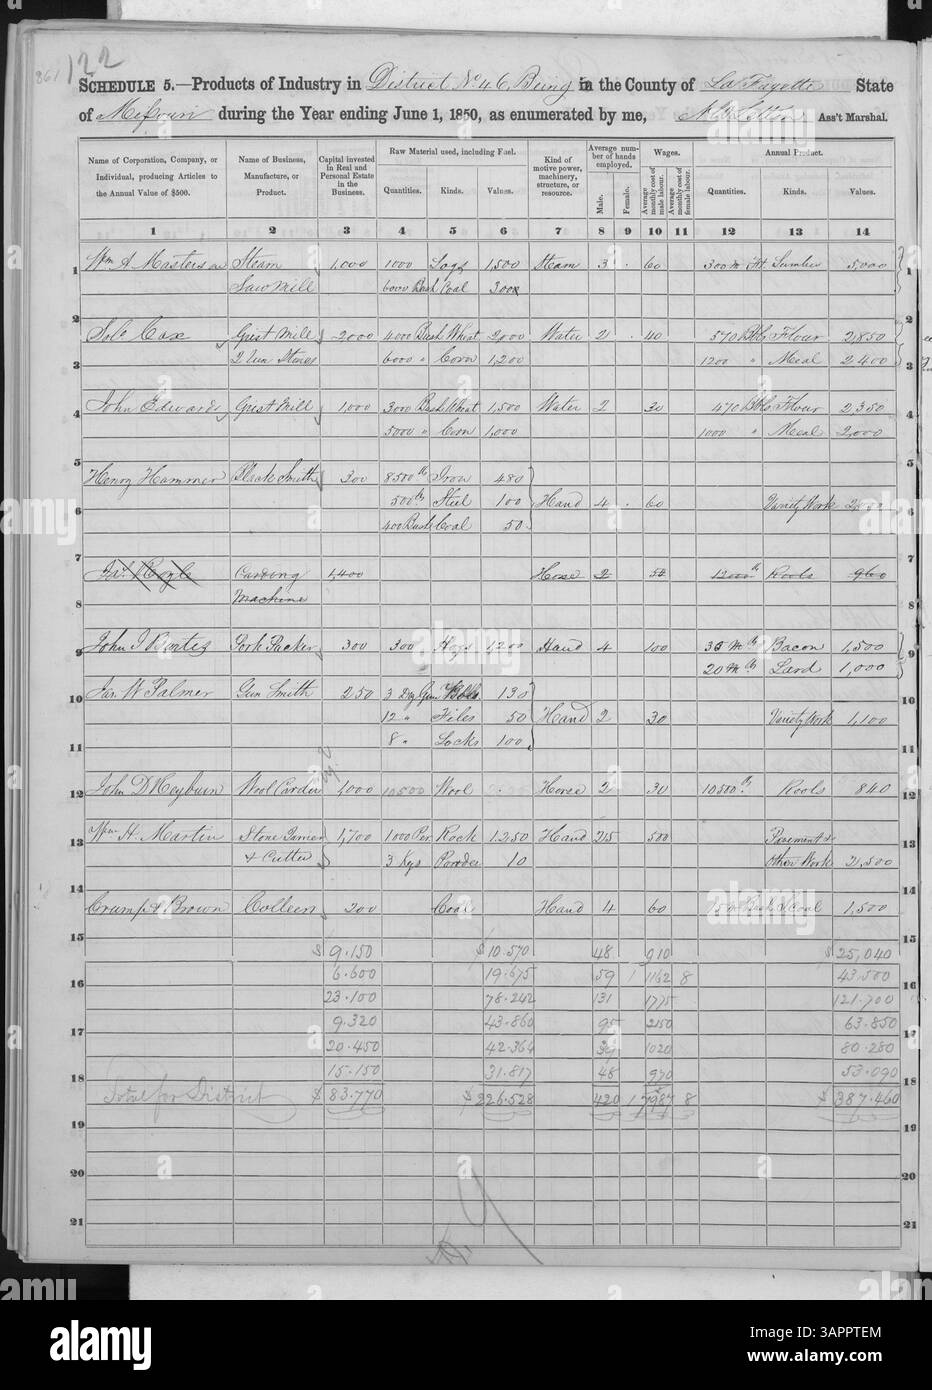 122
861
SCHEDULE 5.—Products of Industry in District No 46 Being in the County of La Fayette State
of Missouri during the Year ending June 1, 1850, as enumerated by me, Ass't Marshal.
Name of Corporation, Company, or Individual, producing Articles to the Annual Value of $500.
Name of Business, Manufacture, or Product.
Capital invested in Real and Personal Estate in the Business.
Raw Material used, including Fuel.
Quantities. Kinds. Values.
Kind of motive power, machinery, structure, or resource.
Average number of hands employed.
Male. Female.
Wages.
Average monthly cost of male labour. Average monthly cost of female labour.
Annual Product.
Quantities. Kinds. Values.
1 2 3 4 5 6 7 8 9 10 11 12 13 14
1 Wm A Masterson Steam 1,000 1000 Logs 1,500 Steam 3 60 300 m ft. Lumber 5,000 1
Saw Mill 6000 Bush Coal 300
2 2
Solo Cox Grist Mill 2000 4000 Bush Wheat 2,000 Water 2 40 570 Bbls Flour 2,850
3 6000 " Corn 1,200 1200 " Meal 2400 3
4 John Edwards Grist Mill 1,000 3000 Bush Wheat 1,500 Water 2 30 470 Bbls Flour 2350 4
5000 " Corn 1,000 1000 " Meal 2,000
5 5
Henry Hammer Black Smith 300 8500 lb Iron 480
6 500 lb Steel 100 Hand 4 60 Variety Work 6
400 Bush Coal 50
7 7
Carding 1,400 Horse 2 12000 lb Rools 960
8 Machine 8
9 John Pork Packer 300 300 Hogs 1,200 Hand 4 100 Bacon 1,500 9
20 m lb Lard 1,000
10 Jas W Palmer Gun Smith 250 3 130 10
12 " Files 50 Hand 2 30 Variety Work 1,100
11 8 " Locks 100 11
12 John D Heyburn Wool Carder 1,000 10500 Wool Horse 2 30 10500 lb Rools 840 12
13 Wm H. Martin Stone 1,700 1000 Per. Rock 1250 Hand 25 500 Pavement & 13
& Cutter 3 Kgs Powder 10 Other Work 2,500
14 14
Crump & Brown 200 Coal Hand 4 60 Coal 1,500
15 15
$9.150 $10.570 48 910 $25,040
16 6.600 19.675 59 1 1162 8 43.500 16
23.100 78.242 131 1775 121.700
17 9.320 43.860 95 2150 63.850 17
20.450 42.364 39 1020 80.280
18 15.150 31.817 48 970 53.090 18
Total for District $83.770 $226.528 420 1 7987 8 $387.460
19 19
20 20
21 21
alamy
Image ID: 3APPTEM
www.alamy.com